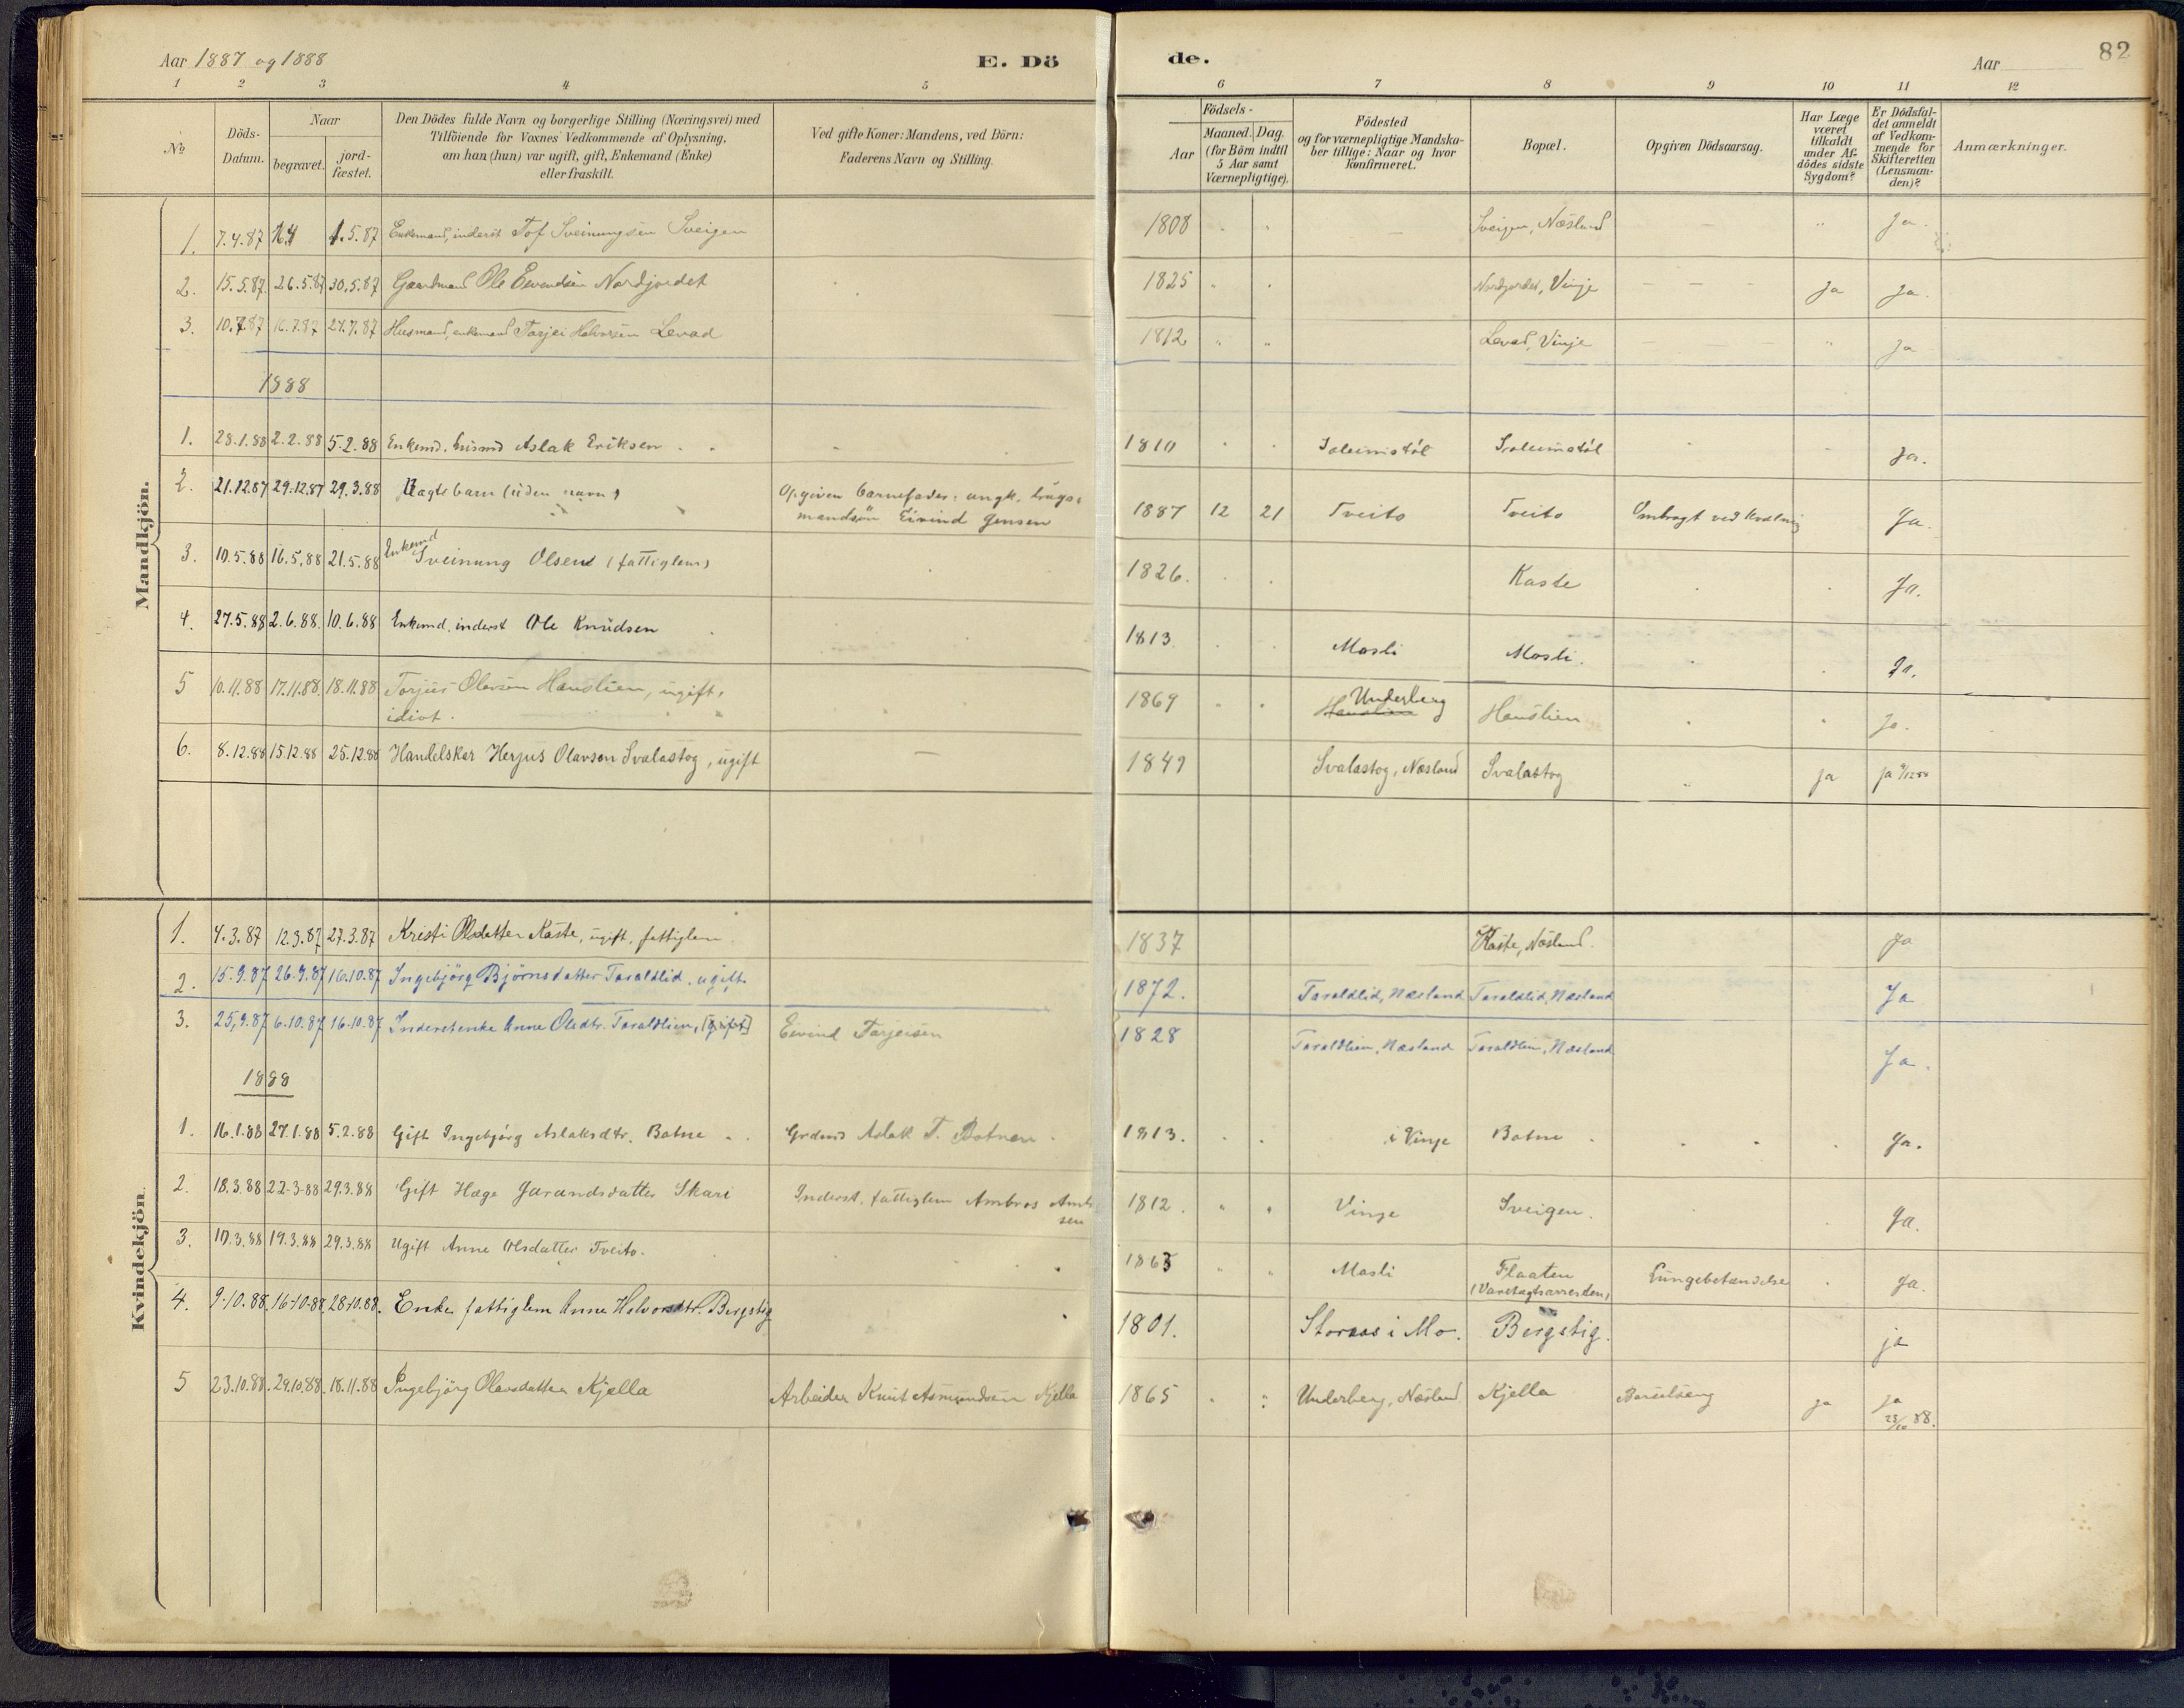 Aar 1887 og 1888 E. Dö de. Aar 82
1 2 3 4 5 6 7 8 9 10 11 12
No
Döds-Datum.
Naar
begravet. jord-fæstet.
Den Dödes fulde Navn og borgerlige Stilling (Næringsvei) med
Tilföiende for Voxnes Vedkommende af Oplysning,
om han (hun) var ugift, gift, Enkemand (Enke)
eller fraskilt.
Ved gifte Koner: Mandens, ved Börn:
Faderens Navn og Stilling.
Aar
Födsels-
Maaned. Dag.
(for Börn indtil
5 Aar samt
Værnepligtige).
Födested
og for værnepligtige Mandska-
ber tillige: Naar og hvor
konfirmeret.
Bopæl.
Opgiven Dödsaarsag.
Har Læge
været
tilkaldt
under Af-
dödes sidste
Sygdom?
Er Dödsfal-
det anmeldt
af Vedkom-
mende for
Skifteretten
(Lensman-
den)?
Anmærkninger.
Mandkjön.
1. 7.4.87 1.5.87 Enkemand, inderst Tof Sveinungsen Sveigen 1808 Sveigen, Næsland ja.
2. 15.5.87 26.5.87 30.5.87 Gaardmand Ole Nordjordet 1825 Nordjordet, Vinje ja ja.
3. 10.7.87 16.7.87 24.7.87 Husmand, enkemand Tarjei Halvorsen Levad 1812 Levad, Vinje ja
1888
1. 28.1.88 2.2.88 5.2.88 Enkemd. husmd Aslak Eriksen 1810 ja.
2. 21.12.87 29.12.87 29.3.88 Uagte barn (uden navn) Opgiven barnefader: ungk.
mandssön Eivind Jensen 1887 12 21 Tveito Tveito Ombragt ved kvælning Ja.
3. 10.5.88 16.5.88 21.5.88 Enkemd
Sveinung Olsen (fattiglem) 1826. Kaste Ja.
4. 27.5.88 2.6.88. 10.6.88 Enkemd. inderst Ole Knudsen 1813 Mosli Mosli. Ja.
5 10.11.88 17.11.88. 18.11.88 Torjus Olavsen Hauslien, ugift,
idiot. 1869 Underberg
Hauslien Hauslien ja.
6. 8.12.88 15.12.88 25.12.88 Handelskar Herjus Olavson Svalastog, ugift — 1849 Svalastog, Næsland Svalastog ja ja
Kvindekjön.
1. 4.3.87 12.3.87 27.3.87 Kristi Olsdatter Kaste, ugift, fattiglem 1837 Kaste, Næsland. Ja
2. 15.9.87 26.9.87 16.10.87 Ingebjörg Björnsdatter Taraldlid, ugift. 1872. Taraldlid, Næsland Taraldlid, Næsland Ja
3. 25.9.87 6.10.87 16.10.87 Inderstenke Anne Olsdtr. Taraldlien, [gift] Eivind Tarjeisen 1828 Taraldlien, Næsland Taraldlien, Næsland Ja.
1888
1. 16.1.88 27.1.88 5.2.88 Gift Ingebjörg Aslaksdtr. Botne Grdmd Aslak T. Botnen 1813. i Vinje Botne Ja.
2. 18.3.88 22-3-88 29.3.88 Gift Hæge Jarandsdatter Skari Inderst, fattiglem Ambros
sen 1812. Vinje Sveigen. Ja.
3. 10.3.88 19.3.88 29.3.88 Ugift Anne Olsdatter Tveito. 1863 Mosli Flaaten
(Varetægtsarresten) Lungebetændelse Ja.
4. 9-10.88. 16-10-88. 28-10.88. Enke, fattiglem Anne Halvorsdtr. Bergstig 1801. i Mo. Bergstig. ja
5 23.10.88. 29.10.88. 18.11.88 Ingebjörg Olavsdatter Kjella Arbeider Knut Asmundsen Kjella 1865 Underberg, Næsland. Kjella Barselseng ja ja
23/10 88.